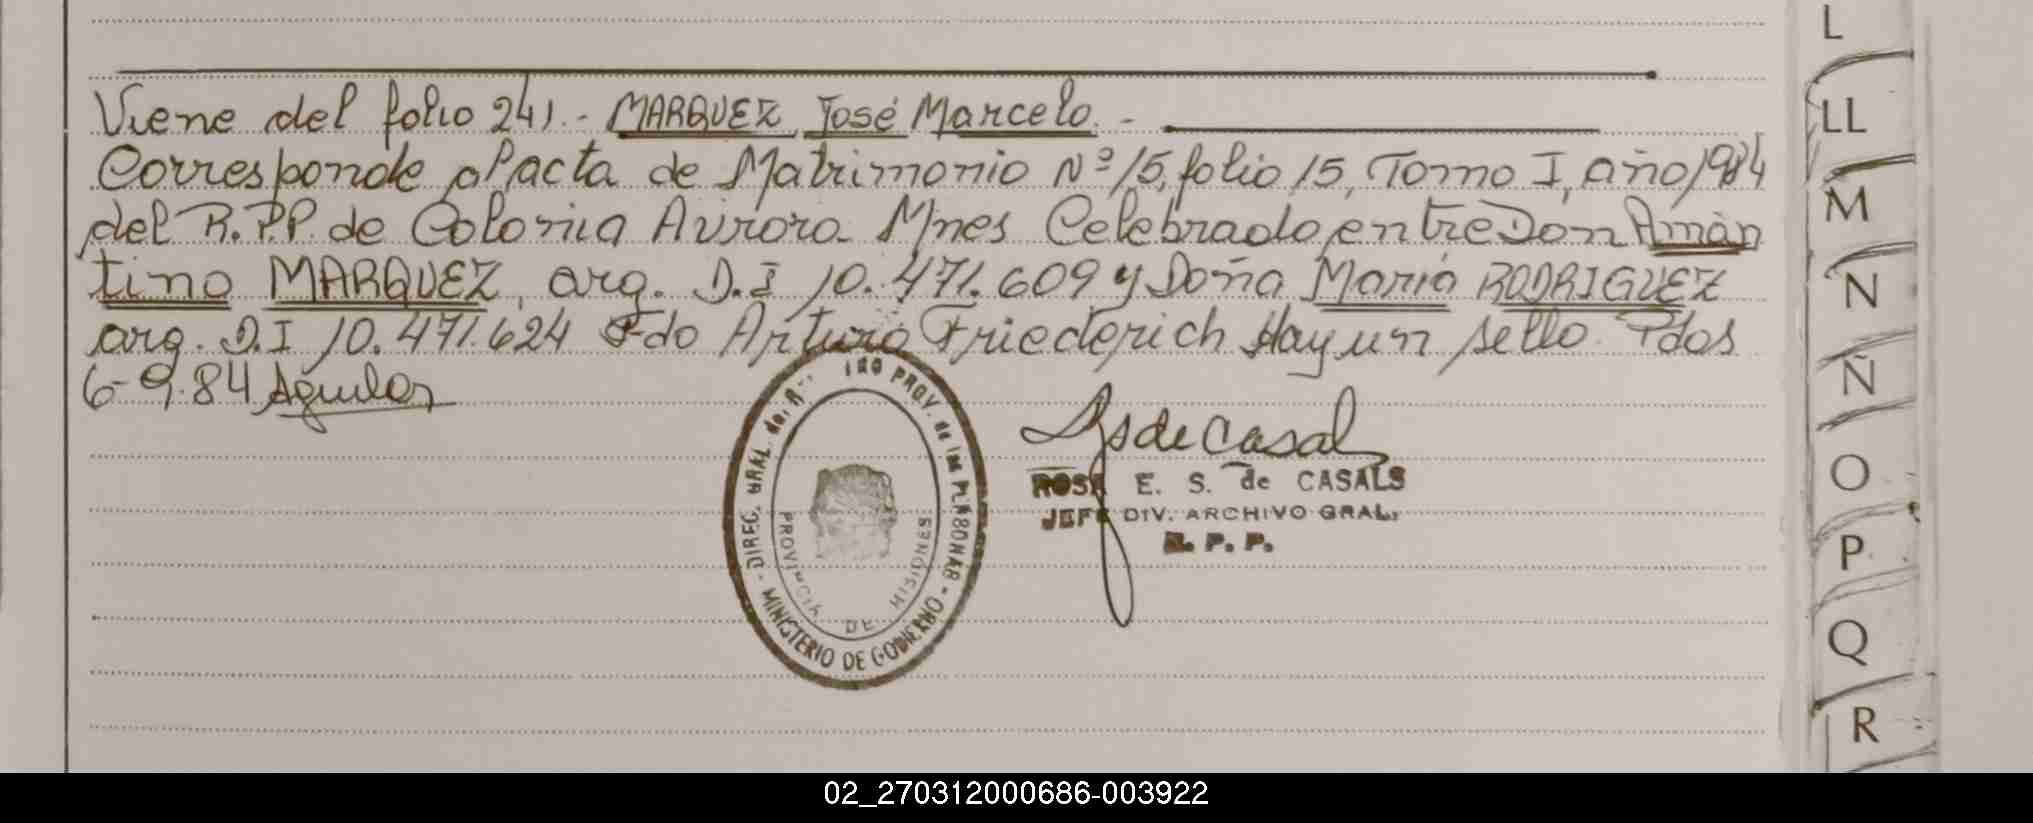 Viene del folio 241.- MARQUEZ José Marcelo.-
Corresponde al acta de Matrimonio Nº 15, folio 15, Tomo I, año 1984
del R.P.P. de Colonia Aurora Mnes Celebrado entre Don Aman
tino MARQUEZ, arg. D.I 10.471.609 y Doña Maria RODRIGUEZ
arg. D.I 10.471.624 Fdo Arturo Friederich Hay un sello. Pdos
6-9-84 Aguilar
DIREC. GRAL. del PROV. de las PERSONAS
MINISTERIO DE GOBIERNO
PROVINCIA DE MISIONES
S de Casal
ROSA E. S. de CASALS
JEFE DIV. ARCHIVO GRAL.
R. P. P.
L
LL
M
N
Ñ
O
P
Q
R
02_270312000686-003922